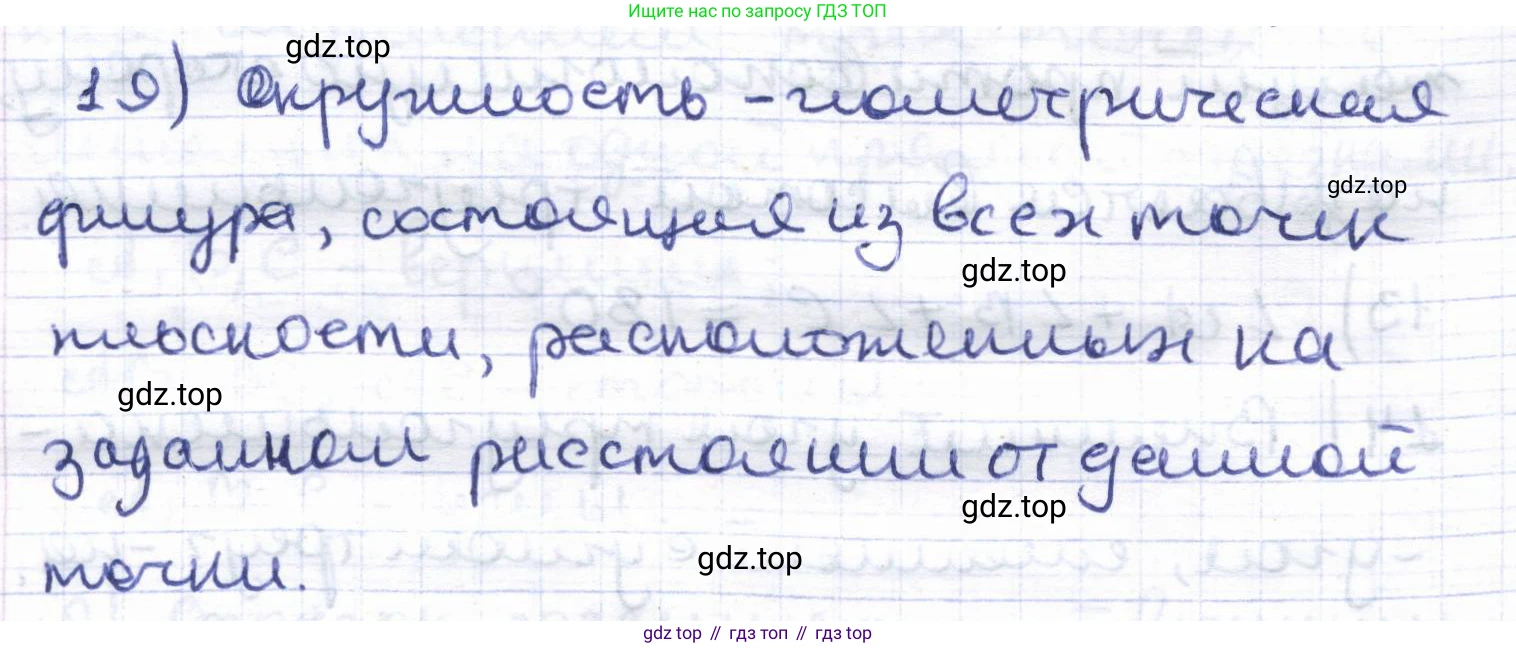 Ищите нас по запросу ГДЗ ТОП
gdz.top
19) Окружность - геометрическая
gdz.top
фигура, состоящая из всех точек
gdz.top
плоскости, расположенных на
gdz.top
заданном расстоянии от данной
gdz.top
gdz.top
точки.
gdz top // гдз топ // гдз top